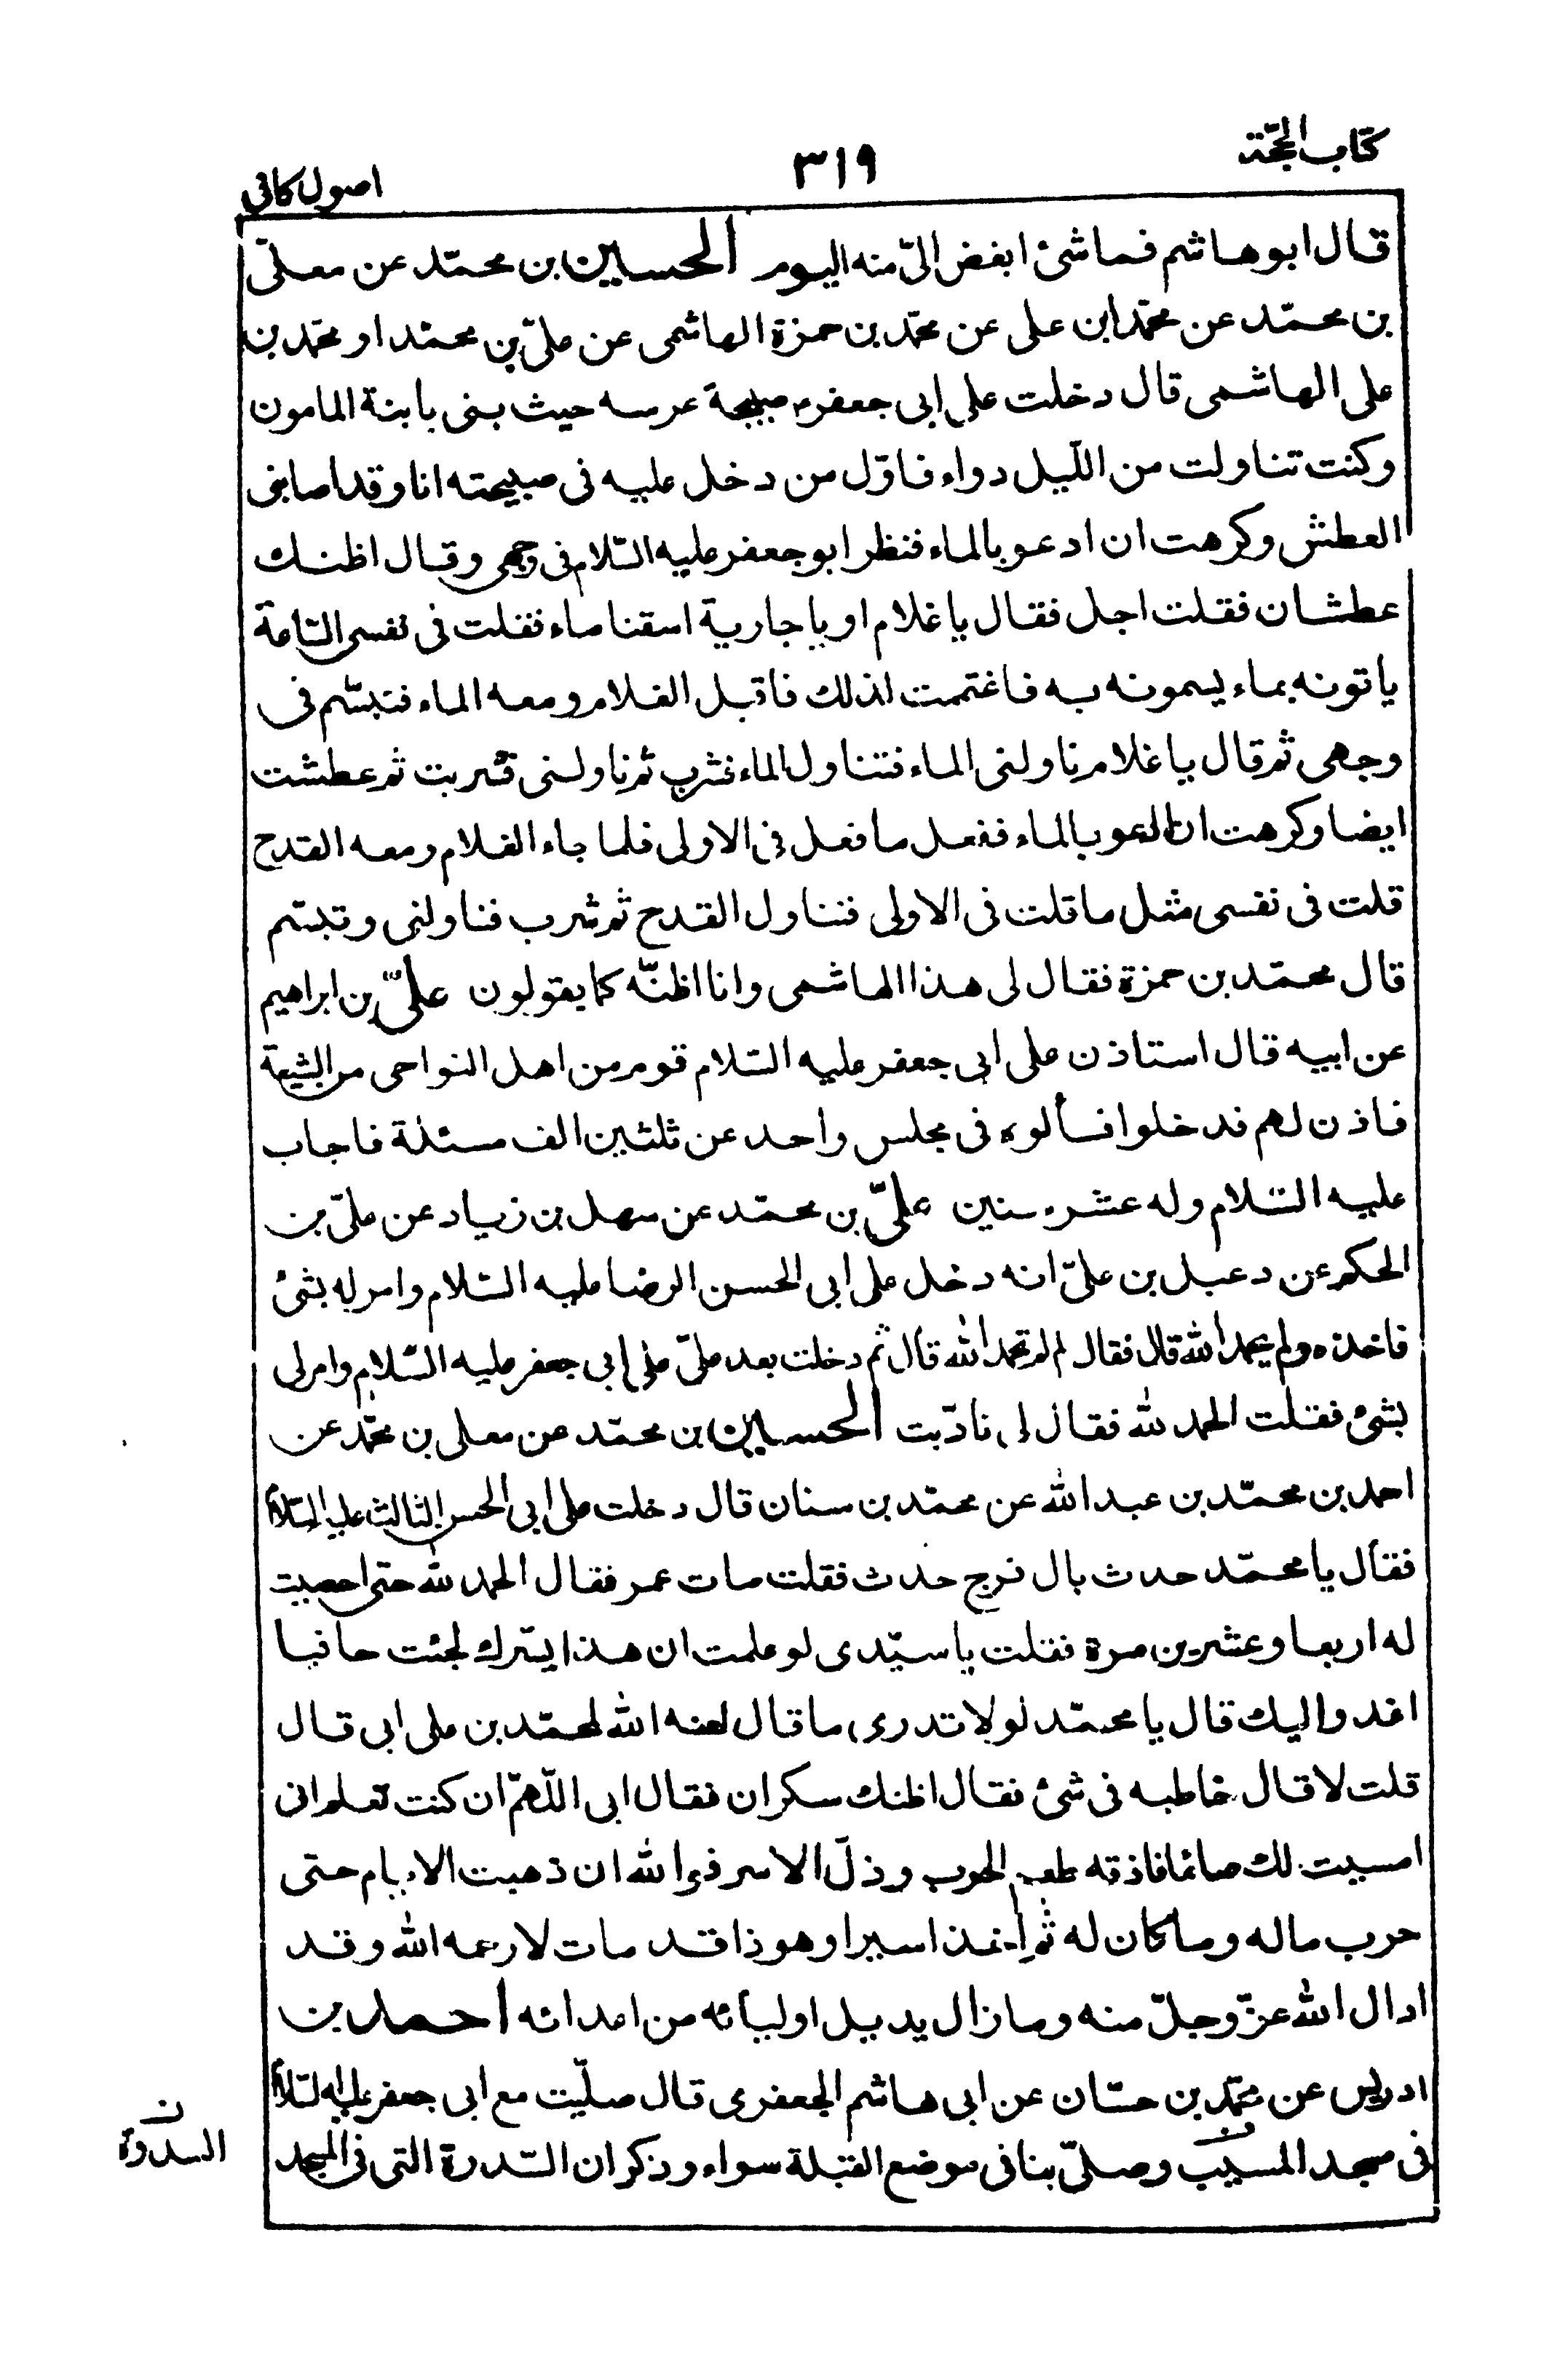 كتاب الحجّة
٣١٩
اصول كافى
قال ابو هاشم فما شئ ابغض الىّ منه اليوم الحسين بن محمّد عن معلّى
بن محمّد عن محمّد ابن على عن محمّد بن حمزة الهاشمى عن علىّ بن محمّد او محمّد بن
على الهاشمى قال دخلت على ابى جعفر صبيحة عرسه حيث بنى بابنة المامون
وكنت تناولت من اللّيل دواء فاوّل من دخل عليه فى صبيحته انا وقد اصابنى
العطش وكرهت ان ادعو بالماء فنظر ابو جعفر عليه السّلام فى وجهى وقال اظنك
عطشان فقلت اجل فقال يا غلام او يا جارية اسقنا ماء فقلت فى نفسى السّاعة
ياتونه بماء يسمونه به فاغتممت لذلك فاقبل الغلام ومعه الماء فتبسّم فى
وجهى ثم قال يا غلام ناولنى الماء فتناول الماء فشرب ثم ناولنى فشربت ثم عطشت
ايضا وكرهت ان ادعو بالماء ففعل ما فعل فى الاولى فلما جاء الغلام ومعه القدح
قلت فى نفسى مثل ما قلت فى الاولى فتناول القدح ثم شرب فناولنى وتبسّم
قال محمّد بن حمزة فقال لى هذا الهاشمى وانا اظنّه كما يقولون علىّ بن ابراهيم
عن ابيه قال استاذن على ابى جعفر عليه السّلام قوم من اهل النواحى من الشيعة
فاذن لهم فدخلوا فسألوه فى مجلس واحد عن ثلثين الف مسئلة فاجاب
عليه السّلام وله عشر سنين علىّ بن محمّد عن سهل بن زياد عن علىّ بن
الحكم عن دعبل بن علىّ انه دخل على ابى الحسن الرضا عليه السّلام وامر له بشئ
فاخذه ولم يحمد الله قال فقال لم لم تحمد الله قال ثم دخلت بعد علىّ على ابى جعفر عليه السّلام وامر لى
بشئ فقلت الحمد لله فقال لى تادّبت الحسين بن محمّد عن معلى بن محمّد عن
احمد بن محمّد بن عبد الله عن محمّد بن سنان قال دخلت على ابى الحسن الثالث عليه السّلام
فقال يا محمّد حدث بال فرج حدث فقلت مات عمر فقال الحمد لله حتى احصيت
له اربعا وعشرين مرة فقلت يا سيّدى لو علمت ان هذا يسّرك لجئت حافيا
اغدو اليك قال يا محمّد لولا تدرى ما قال لعنه الله لمحمّد بن على ابى قال
قلت لا قال خاطبه فى شئ فقال اظنك سكران فقال ابى اللّهمّ ان كنت تعلم انى
امسيت لك صائما فاذقه طعم الحرب وذلّ الاسر فو الله ان ذهبت الايام حتى
حرب ماله وما كان له ثم اخذ اسيرا وهو ذا قد مات لا رحمه الله وقد
ادال الله عزّ وجلّ منه وما زال يديل اوليائه من اعدائه احمد بن
ادريس عن محمّد بن حسّان عن ابى هاشم الجعفرى قال صلّيت مع ابى جعفر عليه السّلام
فى مسجد المسيّب وصلّى بنا فى موضع القبلة سواء وذكر ان السّدرة التى فى المسجد
ن
السدرة